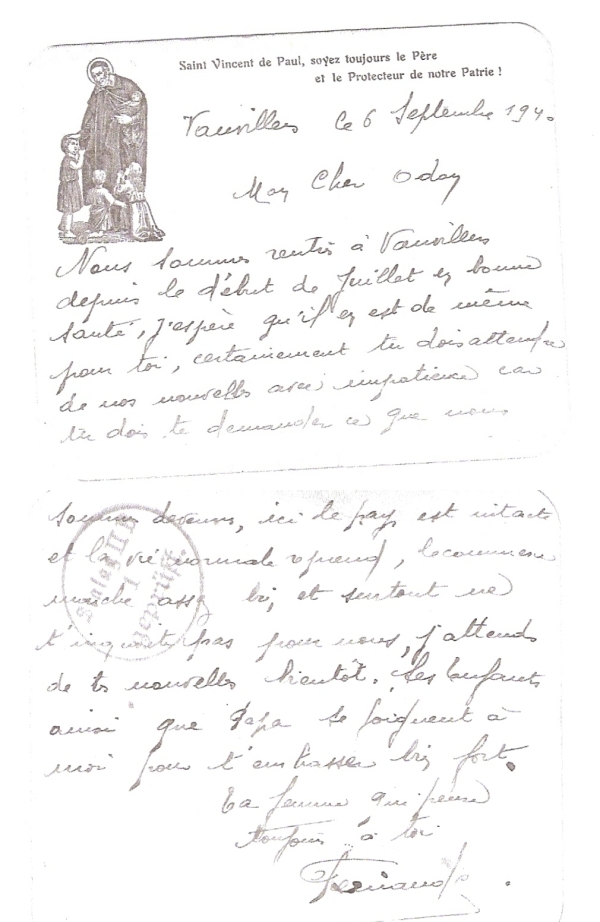 Saint Vincent de Paul, soyez toujours le Père
et le Protecteur de notre Patrie !
Vauvillers le 6 Septembre 1940
Mon Cher Oday
Nous sommes rentrés à Vauvillers
depuis le début de Juillet en bonne
santé, j'espère qu'il en est de même
pour toi, certainement tu dois attendre
de nos nouvelles avec impatience car
tu dois te demander ce que nous
sommes devenus, ici le pays est intact
et la vie normale reprend, le commerce
marche assez bien, et surtout ne
t'inquiète pas pour nous, j'attends
de tes nouvelles bientôt. Les Enfants
ainsi que Papa se joignent à
moi pour t'embrasser bien fort.
Ta femme qui pense
toujours à toi
Fernande.
Stalag II D
1
Geprüft.